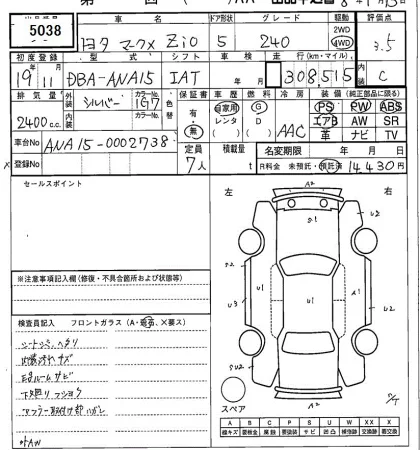 5038
車 名
ドア形状
グレード
駆動
評価点
トヨタ マークX Zio
5
240
2WD
4WD
3.5
初度登録
型 式
シフト
車 検
走 行 (km・マイル)
内装
19年11月
DBA-ANA15
IAT
年 月
308,515
C
排 気 量
外装
カラーNo.
色替
保証書
車 歴
燃料
冷 房
装 備 (純正部品に限る)
2400 c.c.
シルバー
1G7
有・無
自家用
レンタ
G
D
AAC
PS PW ABS
エアB AW SR
革 ナビ TV
車台No
ANA15-0002738
定員
7人
積載量
t
名変期限 年 月 日
登録No
R料金 未預託・預託済 14,430 円
セールスポイント
左
右
A2
S1
U2
U2
U3
U1
U1
A1
SU2
A2
スペア
※注意事項記入欄 (修復・不具合箇所および状態等)
検査員記入 フロントガラス (A・飛石、X要ス)
シートシミ、ヘタリ
内張汚れ キズ
EGルーム サビ
下廻り サビ
マフラー取付け部 ハガレ
社外AW
A B C P S U W X XX
線キズ 要板金 腐 錆 要塗装 サ ビ 凹 凸 補修跡 交換跡 要交換